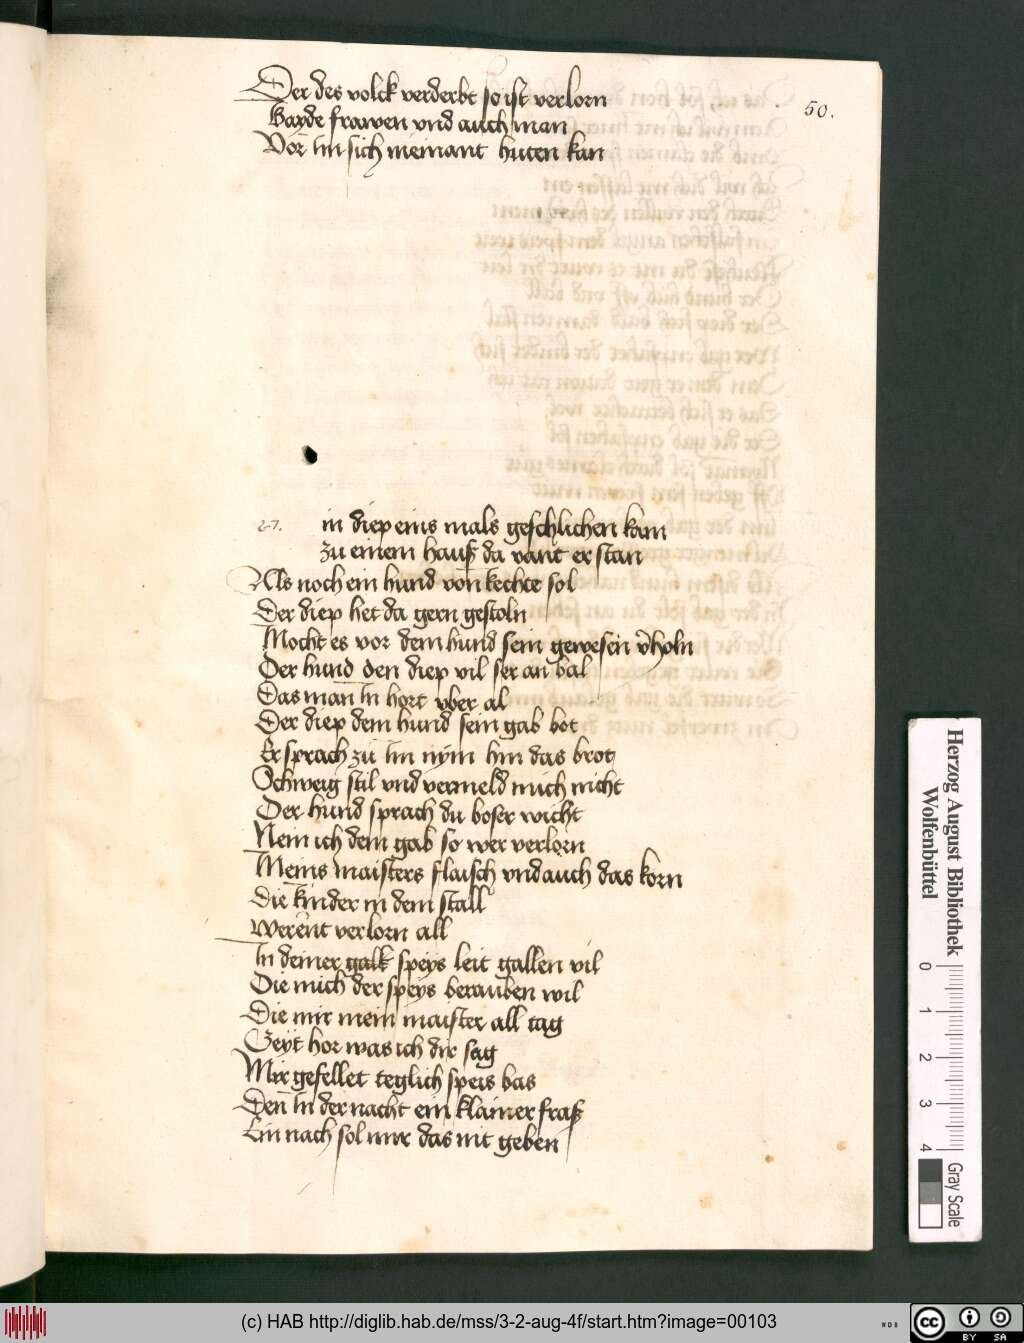 Der des volck verderbt so ist verlorn
50.
Bayde frawen vnd auch man
Vor im sich niemant huten kan
27.
in diep eins mals geschlichen kam
zu einem hauß da vant er stan
Als noch ein hund von rechte sol
Der diep het da gern gestoln
Mocht es vor dem hund sein gewesen v̄holn
Der hund den diep vil ser an bal
Das man in hort vber al
Der diep dem hund sein gab bot
Er sprach zu im nym hin das brot
Schweig stil vnd vermeld mich nicht
Der hund sprach du boser wicht
Nem ich dein gab so wer verlorn
Meins maisters flaisch vnd auch das korn
Die kinder in dem stall
Werent verlorn all
In deiner speys leit gallen vil
Die mich der speys berauben wil
Die mir mein maister all tag
Geyt hor was ich dir sag
Mir gefellet teglich speis bas
Den in der nacht ein klainer fraß
nach sol mir das nit geben
Herzog August Bibliothek
Wolfenbüttel
0 1 2 3 4
Gray Scale
(c) HAB http://diglib.hab.de/mss/3-2-aug-4f/start.htm?image=00103
cc BY SA